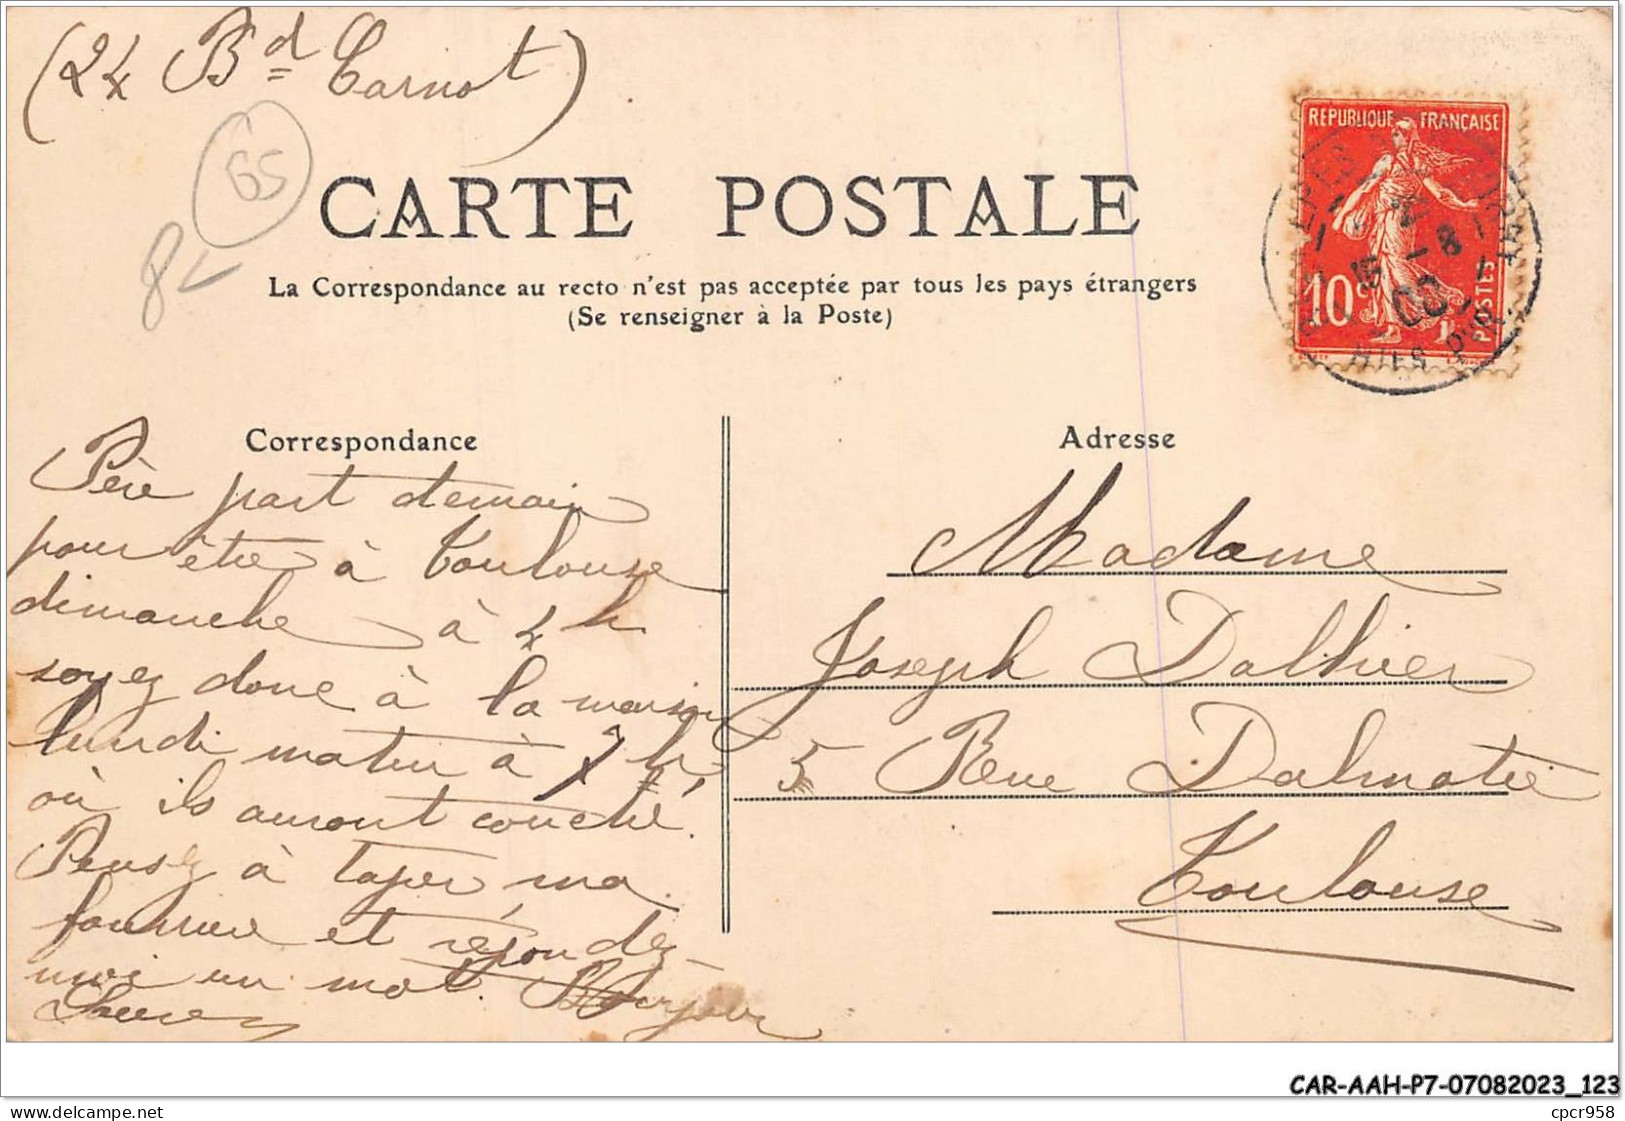 (24 Bd Carnot)
65
8
CARTE POSTALE
La Correspondance au recto n'est pas acceptée par tous les pays étrangers
(Se renseigner à la Poste)
REPUBLIQUE FRANÇAISE
10c
POSTES
15 - 8
Correspondance
Adresse
Père part demain
pour être à Toulouse
dimanche à 4 h
soyez donc à la maison
lundi matin à 7 h
où ils auront couché.
Pensez à taper ma
fourrure et répondez-
moi un mot. Bonjour
Madame
Joseph Dalbier
5 Rue Dalmatie
Toulouse
CAR-AAH-P7-07082023_123
cpcr958